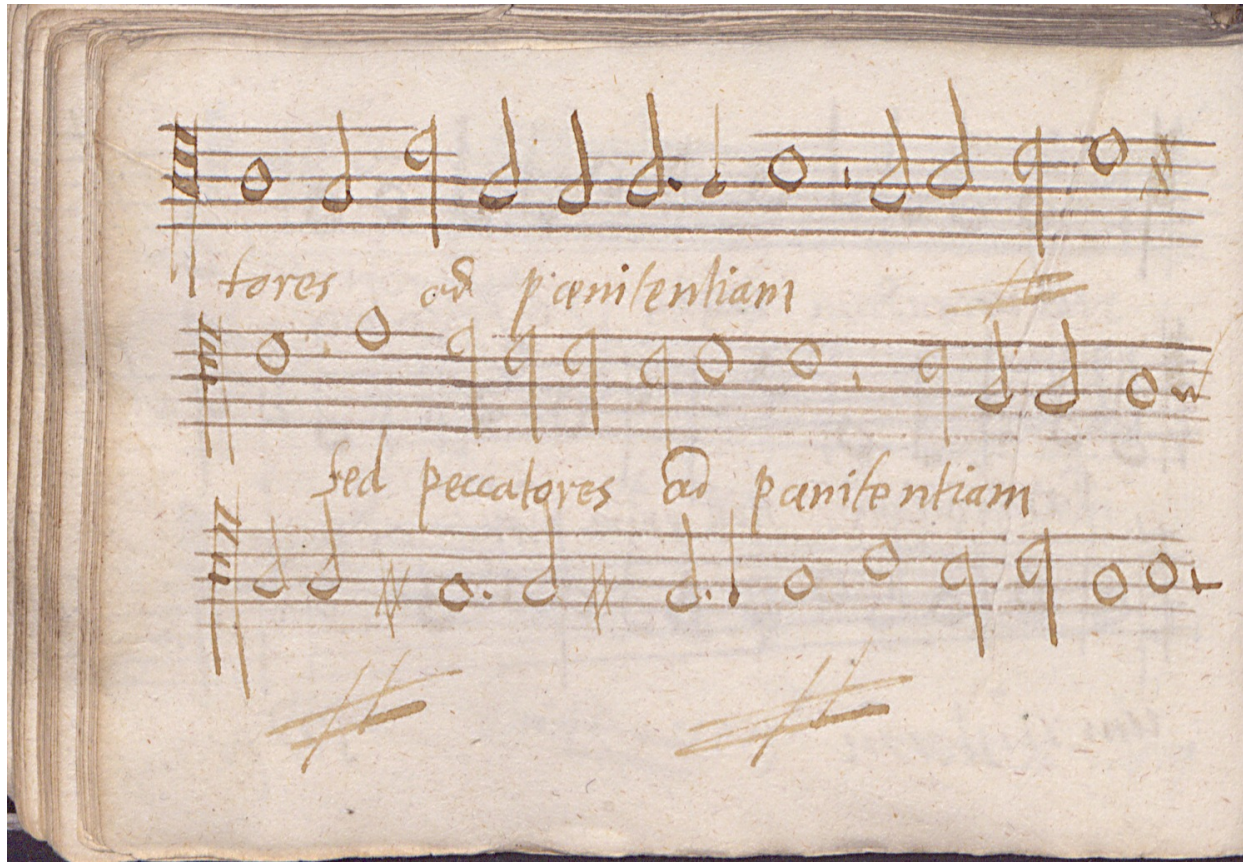 tores ad pœnitentiam
sed peccatores ad pœnitentiam